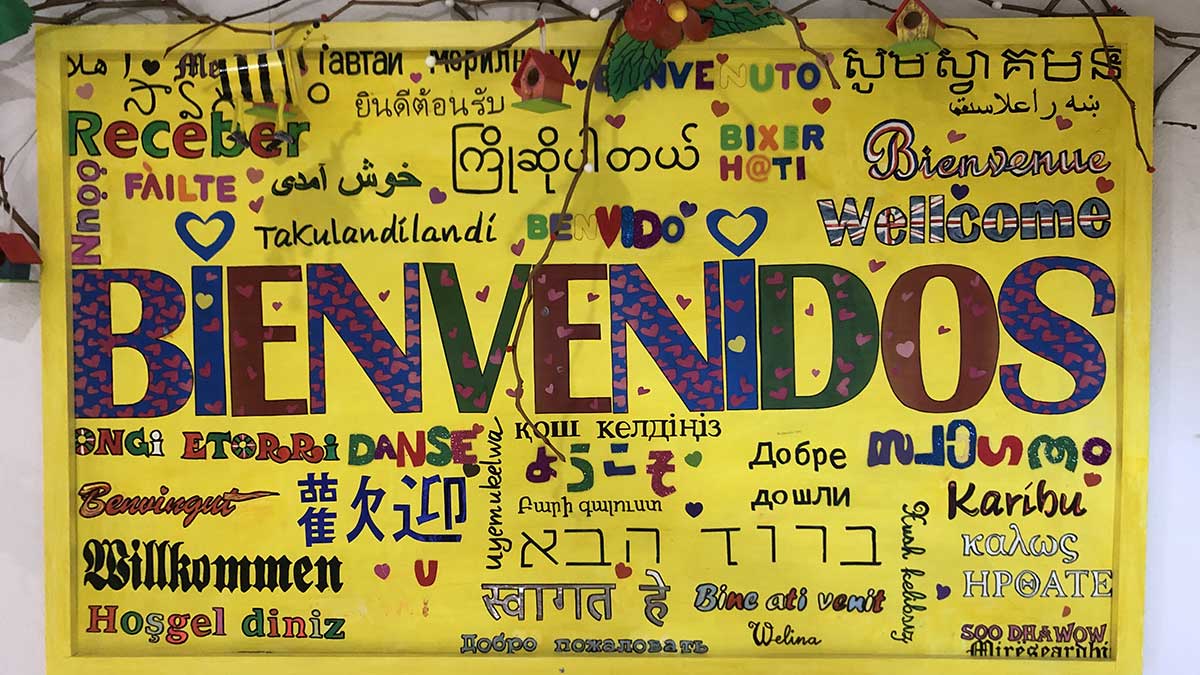 тавтай морилнууу
BENVENUTO
សូមស្វាគមន៍
ยินดีต้อนรับ
Receber
ကြိုဆိုပါတယ်
BIXER
H@TI
Bienvenue
Nnọọ
FÀILTE
خوش آمدی
Takulandilandi
BENVIDO
Wellcome
BIENVENIDOS
ONGI ETORRI
DANSE
Uyemukelwa
қош келдіңіз
ようこそ
Добре
дошли
സ്വാഗതം
Benvingut
歡迎
Բարի գալուստ
Karibu
ברוך הבא
Kush kelibsiz
καλως
ΗΡΘΑΤΕ
Willkommen
U
स्वागत हे
Bine ati venit
Hoşgel diniz
Добро пожаловать
Welina
SOO DHAWOW
Mireseardhi